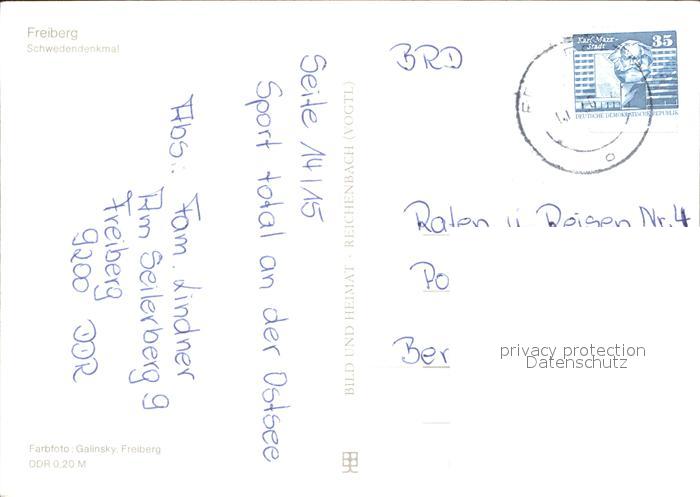 Freiberg
Schwedendenkmal
Seite 14/15
Sport total an der Ostsee
Abs.: Fam. Lindner
Am Seilerberg 9
Freiberg
9200 DDR
Farbfoto: Galinsky, Freiberg
DDR 0,20 M
BILD UND HEIMAT · REICHENBACH (VOGTL)
BRD
Karl-Marx-
Stadt
35
DEUTSCHE DEMOKRATISCHE REPUBLIK
Raten u Reisen Nr. 4
Po
Ber
privacy protection
Datenschutz